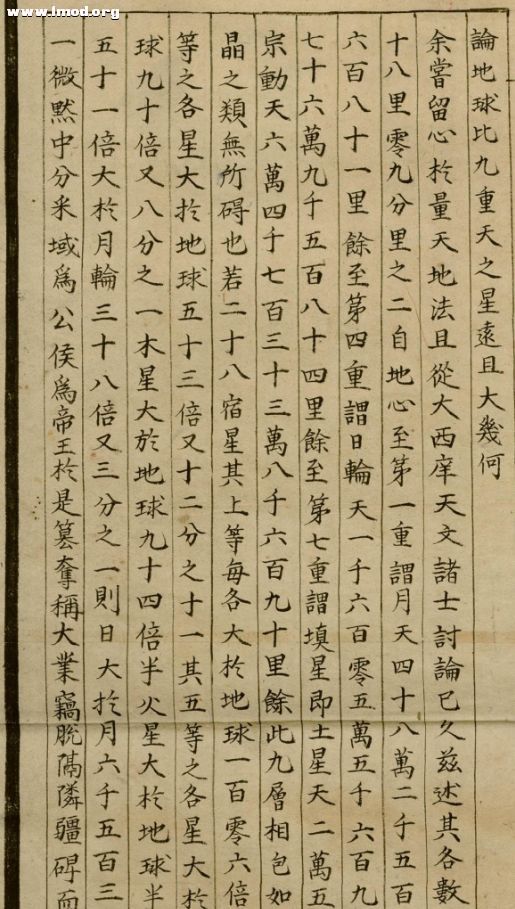 www.imod.org
論地球比九重天之星遠且大幾何
余嘗留心於量天地法且從大西庠天文諸士討論已久茲述其各數
十八里零九分里之二自地心至第一重謂月天四十八萬二千五百
六百八十一里餘至第四重謂日輪天一千六百零五萬五千六百九
七十六萬九千五百八十四里餘至第七重謂填星即土星天二萬五
宗動天六萬四千七百三十三萬八千六百九十里餘此九層相包如
晶之類無所碍也若二十八宿星其上等每各大於地球一百零六倍
等之各星大於地球五十三倍又十二分之十一其五等之各星大於
球九十倍又八分之一木星大於地球九十四倍半火星大於地球半
五十一倍大於月輪三十八倍又三分之一則日大於月六千五百三
一微黙中分釆域為公侯為帝王於是篡奪稱大業竊脫隔隣疆碑而